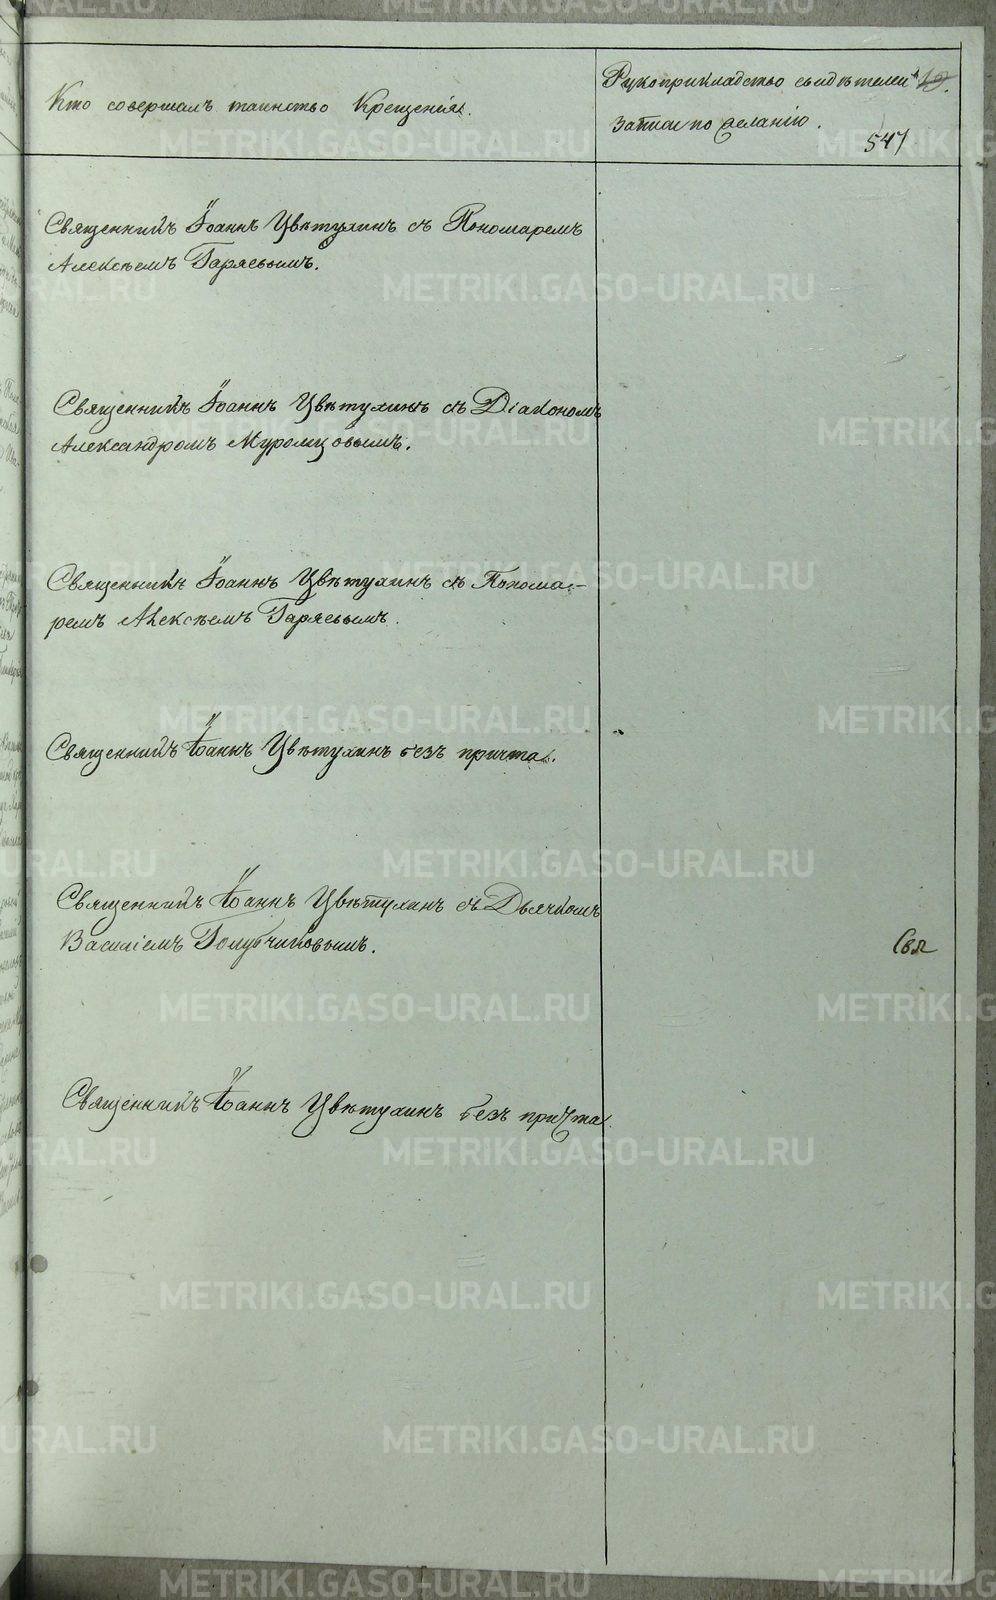 Кто совершалъ таинство Крещенія.
Рукоприкладство свидѣтелей 12.
записи по желанію.
547
Священникъ Іоаннъ Цвѣтухинъ съ Пономаремъ
Алексѣемъ Гаряевымъ.
Священникъ Іоаннъ Цвѣтухинъ съ Діакономъ
Александромъ Муромцовымъ.
Священникъ Іоаннъ Цвѣтухинъ съ Понома-
ремъ Алексѣемъ Гаряевымъ.
Священникъ Іоаннъ Цвѣтухинъ безъ причта.
Священникъ Іоаннъ Цвѣтухинъ съ Дьячкомъ
Василіемъ Голубчиковымъ.
Свя
Священникъ Іоаннъ Цвѣтухинъ безъ причта.
METRIKI.GASO-URAL.RU